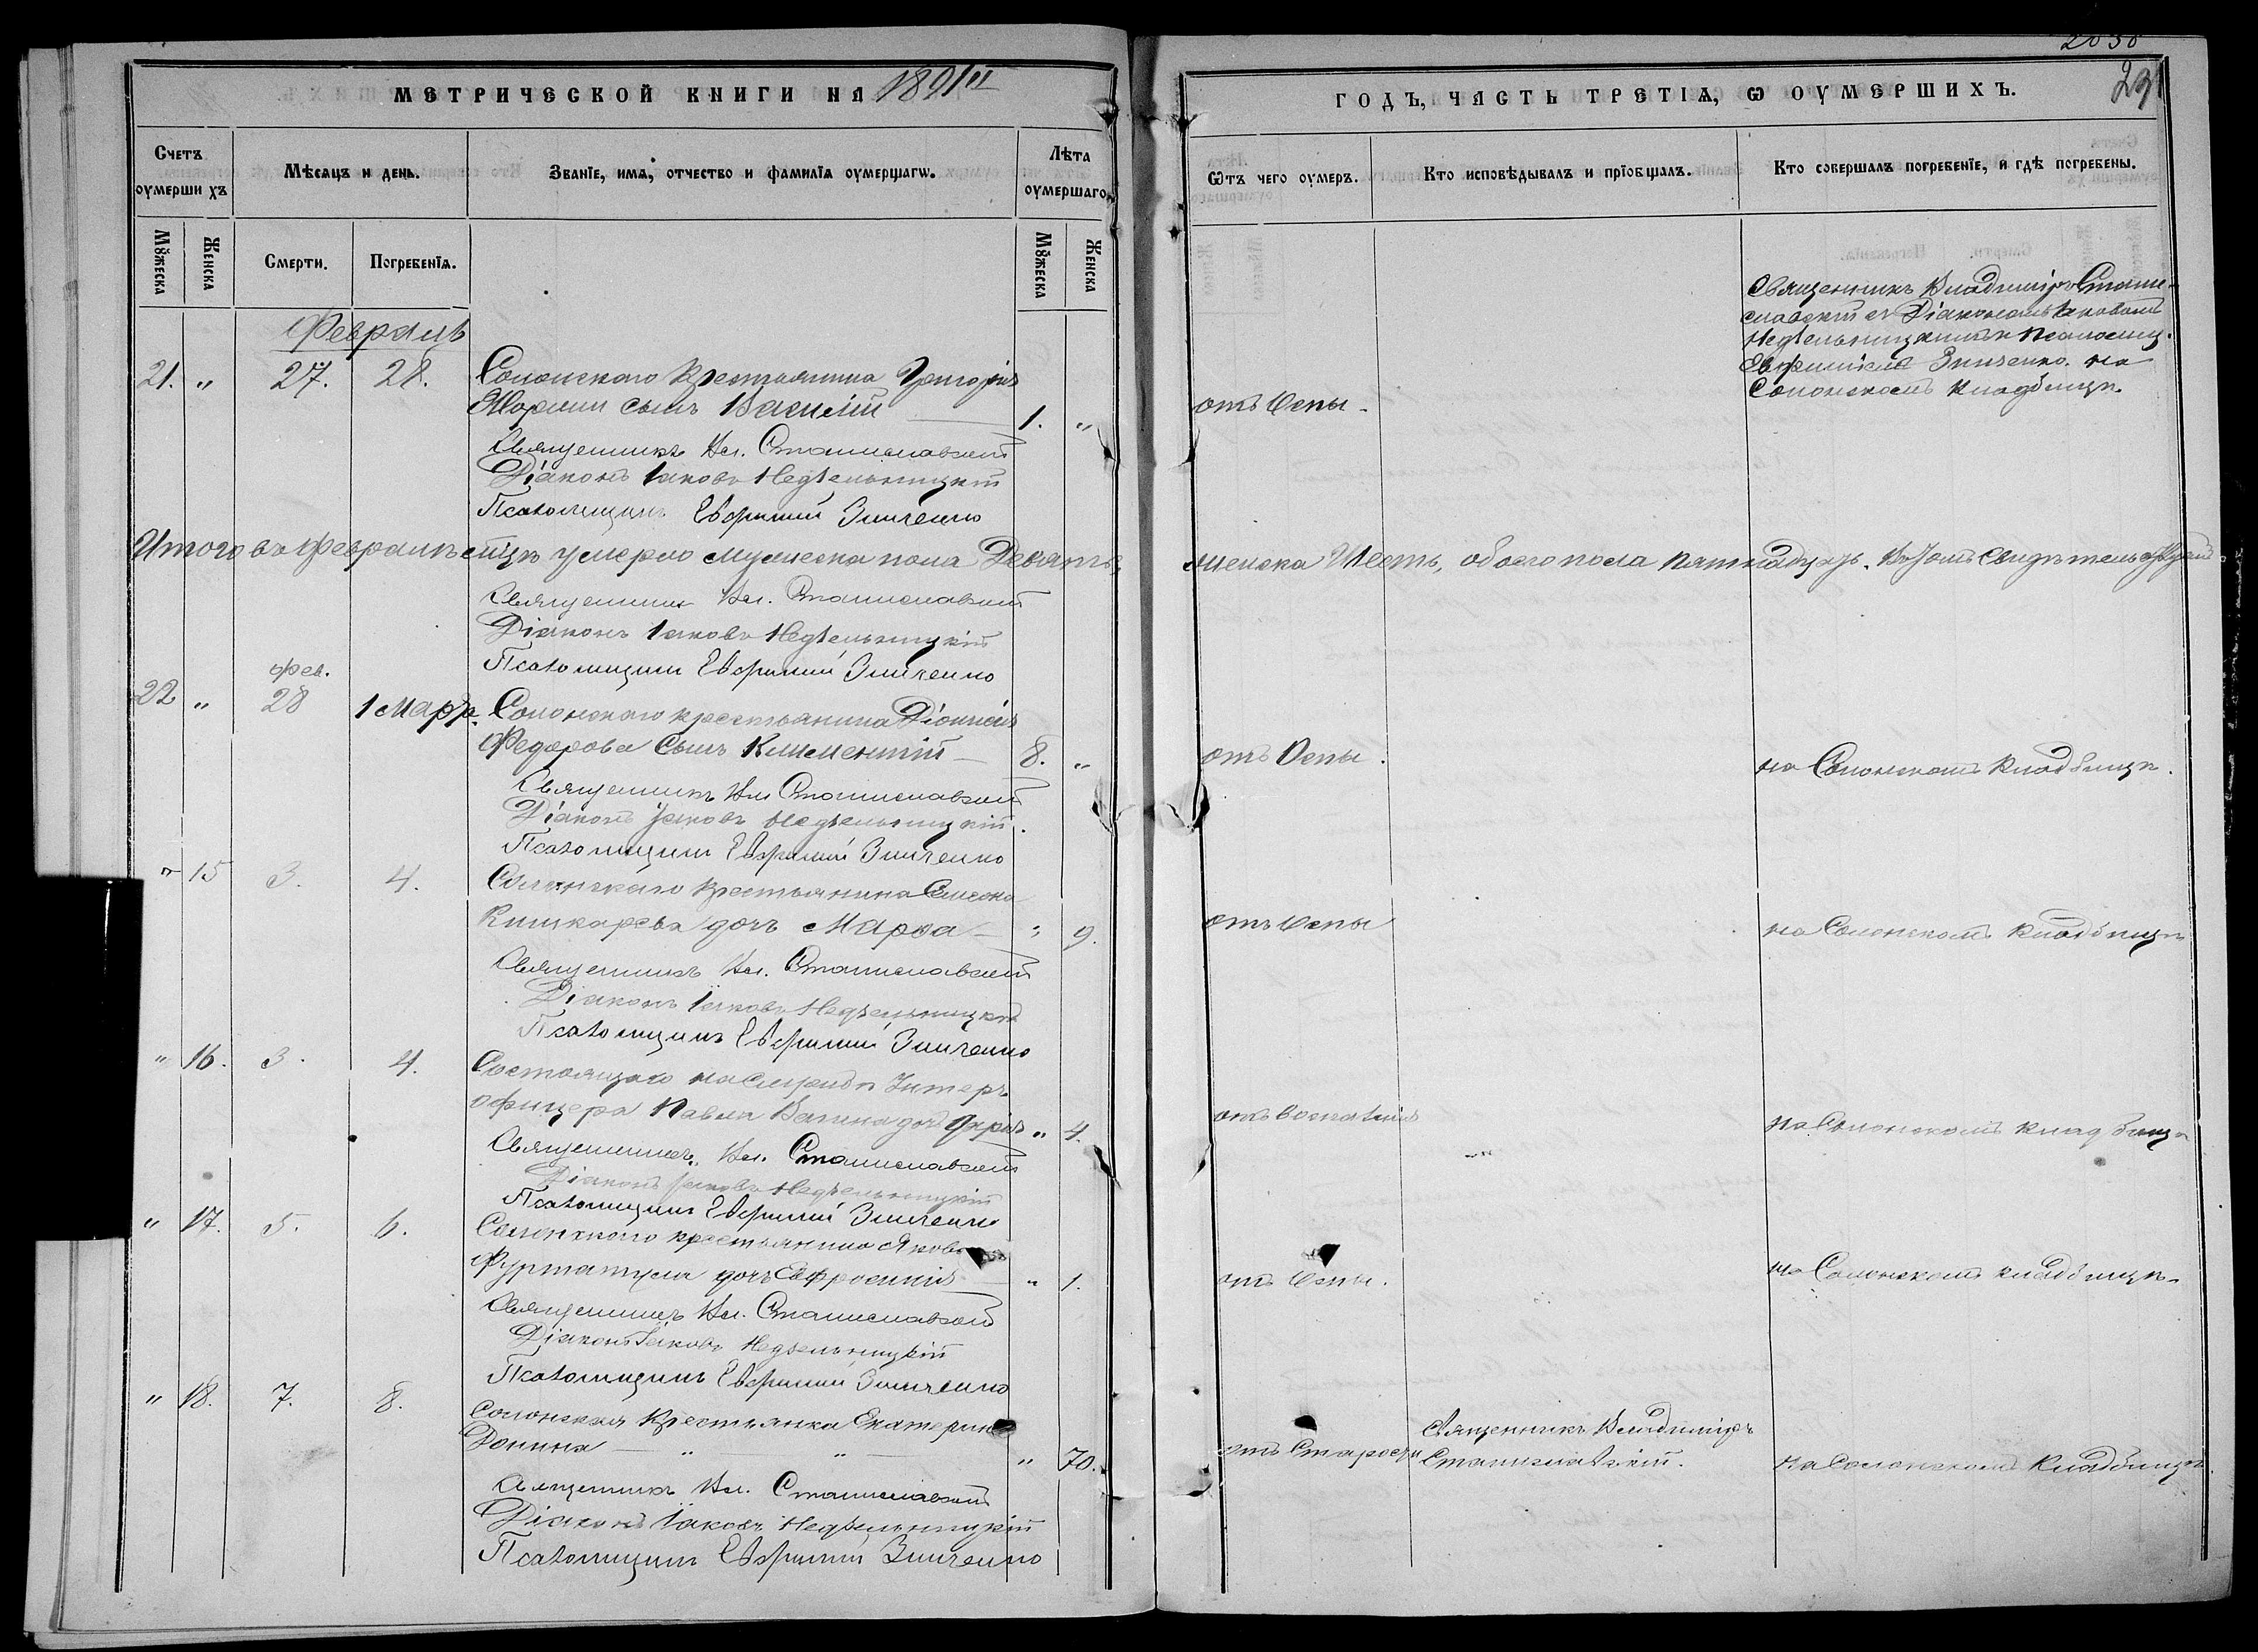 2030
МЕТРИЧЕСКОЙ КНИГИ НА 1891
ГОДЪ, ЧАСТЬ ТРЕТІѦ, Ѡ ОУМЕРШИХЪ.
291
Счетъ оумерши хъ
Мѣсяцъ и день.
Званїе, имѧ, отчество и фамилїѧ оумершагѡ.
Лѣта оумершаго
Ѿтъ чего оумеръ.
Кто исповѣдывалъ и прїобщалъ.
Кто совершалъ погребенїе, и гдѣ погребены.
Мꙋжеска
Женска
Смерти.
Погребенїѧ.
Мꙋжеска
Женска
Февраль
21. " 27. 28. Солонскаго Крестьянина Григорія
сынъ Василій 1. "
отъ Оспы.
Священникъ Владиміръ Стани-
славскій съ Діакономъ Іаковомъ
Недѣльницкимъ и Псаломщ.
Евфиміемъ Зинченко. на
Солонскомъ Кладбищѣ.
Священникъ Вл. Станиславскій
Діаконъ Іаковъ Недѣльницкій
Псаломщикъ Евфимій Зинченко
Итого въ Февралѣ м̃цѣ умерло мужеска пола Девять, женска Шесть, обоего пола пятнадцать. Въ томъ свидѣтельствуемъ
Священникъ Вл. Станиславскій
Діаконъ Іаковъ Недѣльницкій
Псаломщикъ Евфимій Зинченко
фев.
22 " 28 1 Мар. Солонскаго крестьянина Діонисія
Федорова сынъ Климентій — 8. "
отъ Оспы.
на Солонскомъ Кладбищѣ.
Священникъ Вл Станиславскій
Діаконъ Іаковъ Недѣльницкій.
Псаломщикъ Евфимій Зинченко
" 15 3. 4. Солонскаго крестьянина Симеона
дочь Марѳа — " 9.
отъ Оспы
на Солонскомъ Кладбищѣ
Священникъ Вл. Станиславскій
Діаконъ Іаковъ Недѣльницкій
Псаломщикъ Евфимій Зинченко
" 16. 3. 4. Состоящаго на Службѣ Унтеръ
офицера Павла дочь " 4.
отъ воспаленія
на Солонскомъ кладбищѣ
Священникъ Вл. Станиславскій
Діаконъ Іаковъ Недѣльницкій
Псаломщикъ Евфимій Зинченко
" 17. 5. 6. Солонскаго крестьянина Якова
дочь Евфросинія — " 1.
отъ Оспы.
на Солонскомъ кладбищѣ.
Священникъ Вл. Станиславскій
Діаконъ Іаковъ Недѣльницкій
Псаломщикъ Евфимій Зинченко
" 18. 7. 8. Солонская Крестьянка Екатерина
Донина — " " — " 70.
отъ Старости
Священникъ Владиміръ
Станиславскій.
на Солонскомъ Кладбищѣ.
Священникъ Вл. Станиславскій
Діаконъ Іаковъ Недѣльницкій
Псаломщикъ Евфимій Зинченко